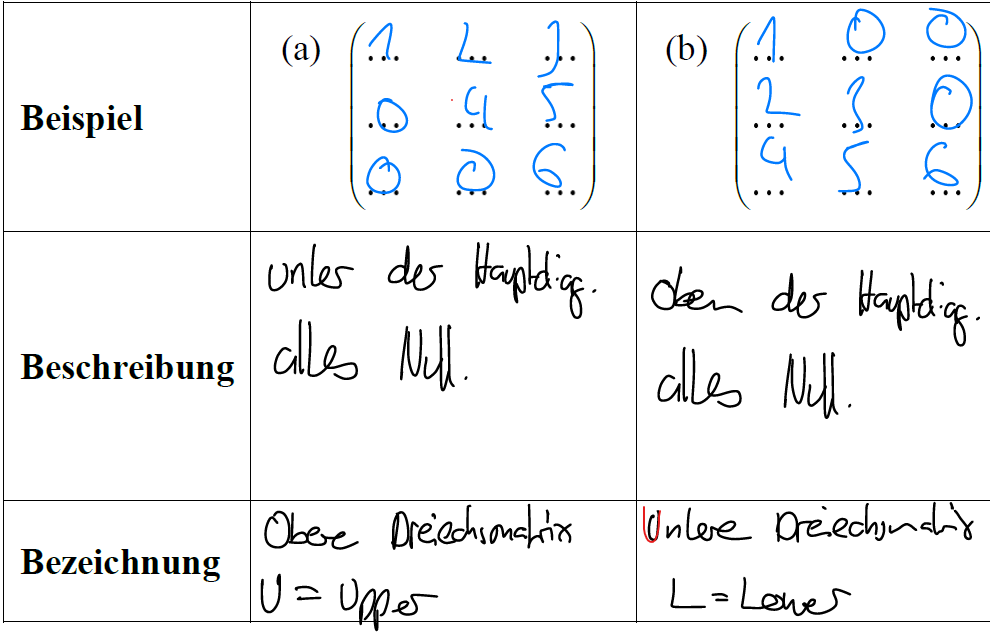 Beispiel
(a)
1 2 3
0 4 5
0 0 6
(b)
1 0 0
2 3 0
4 5 6
Beschreibung
unter der Hauptdiag.
alles Null.
Oben der Hauptdiag.
alles Null.
Bezeichnung
Obere Dreiecksmatrix
U = Upper
Untere Dreiecksmatrix
L = Lower